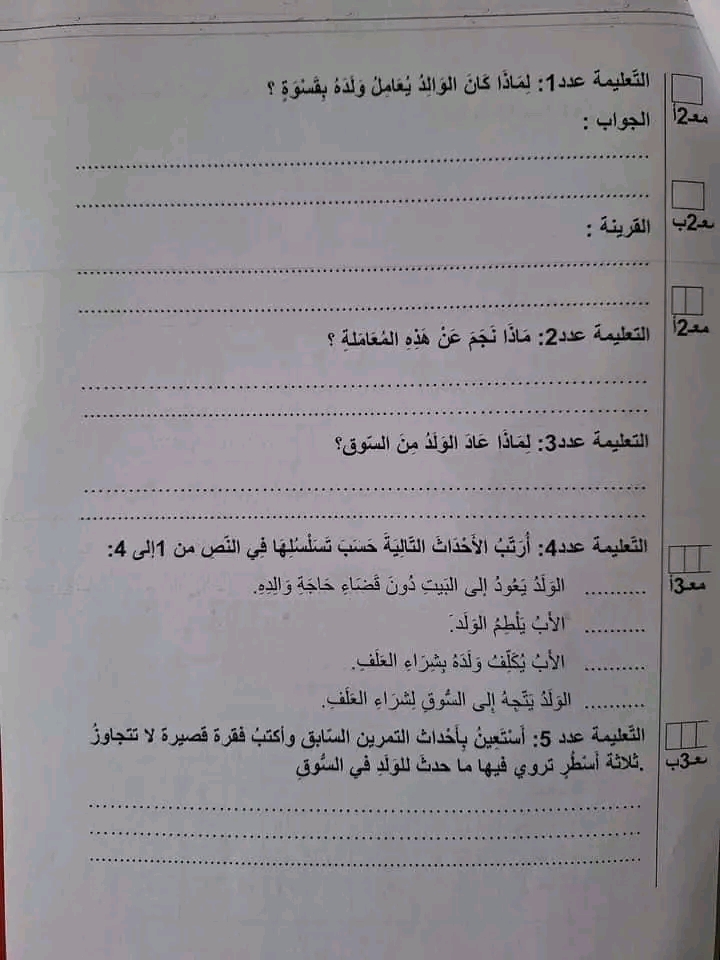 التّعليمة عدد1: لِمَاذَا كَانَ الوَالِدُ يُعَامِلُ وَلَدَهُ بِقَسْوَةٍ ؟
معـ2أ
الجواب :
................................................
................................................
معـ2ب
القرينة :
................................................
................................................
معـ2أ
التعليمة عدد2: مَاذَا نَجَمَ عَنْ هَذِهِ المُعَامَلةِ ؟
................................................
................................................
التعليمة عدد3: لِمَاذَا عَادَ الوَلَدُ مِنَ السّوق؟
................................................
................................................
التّعليمة عدد4: أُرَتّبُ الأَحْدَاثَ التّالِيَةَ حَسَبَ تَسَلْسُلِهَا فِي النّص من 1إلى 4:
معـ3أ
.......... الوَلَدُ يَعُودُ إلى البَيتِ دُونَ قَضَاءِ حَاجَةِ وَالِدِهِ.
.......... الأَبُ يَلْطِمُ الوَلَدَ.
.......... الأَبُ يُكَلّفُ وَلَدَهُ بِشِرَاءِ العَلَفِ.
.......... الوَلَدُ يَتّجِهُ إِلَى السُّوقِ لِشرَاءِ العَلَفِ.
التّعليمة عدد 5: أَسْتَعِينُ بِأَحْدَاث التمرين السّابق وأكتبُ فقرة قصيرة لا تتجاوزُ
معـ3ب
.ثلاثة أَسْطُرٍ تروي فيها ما حدثَ للوَلَدِ في السُّوقِ
................................................
................................................
................................................